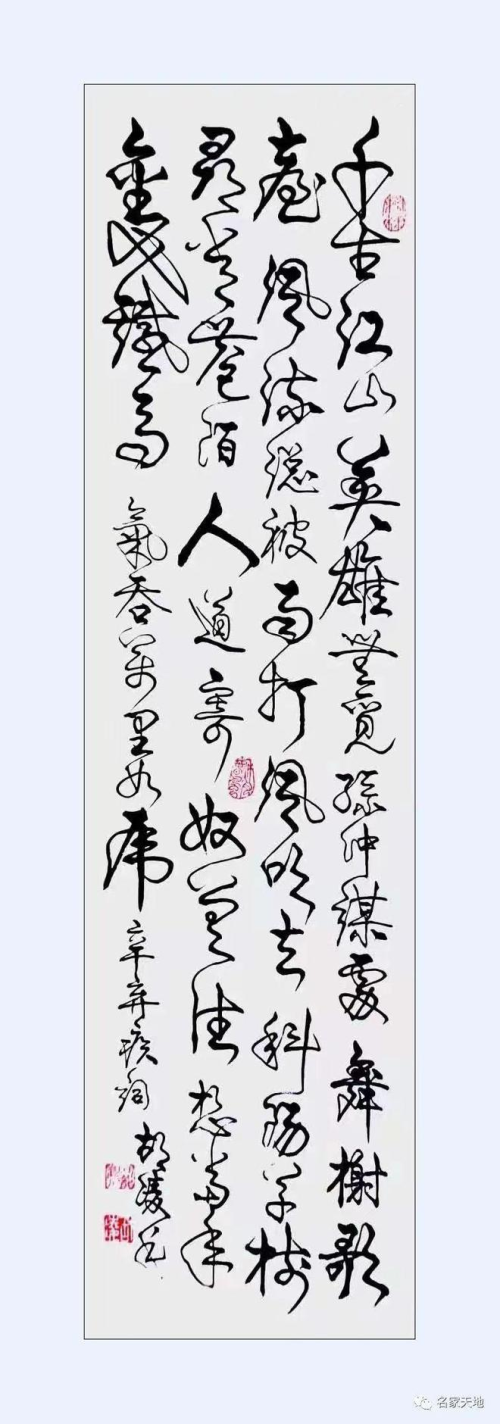 千古江山英雄無覓孫仲謀處舞榭歌
臺風流總被雨打風吹去斜陽草樹
尋常巷陌人道寄奴曾住想當年
金戈鐵馬氣吞萬里如虎辛弃疾詞
名家天地